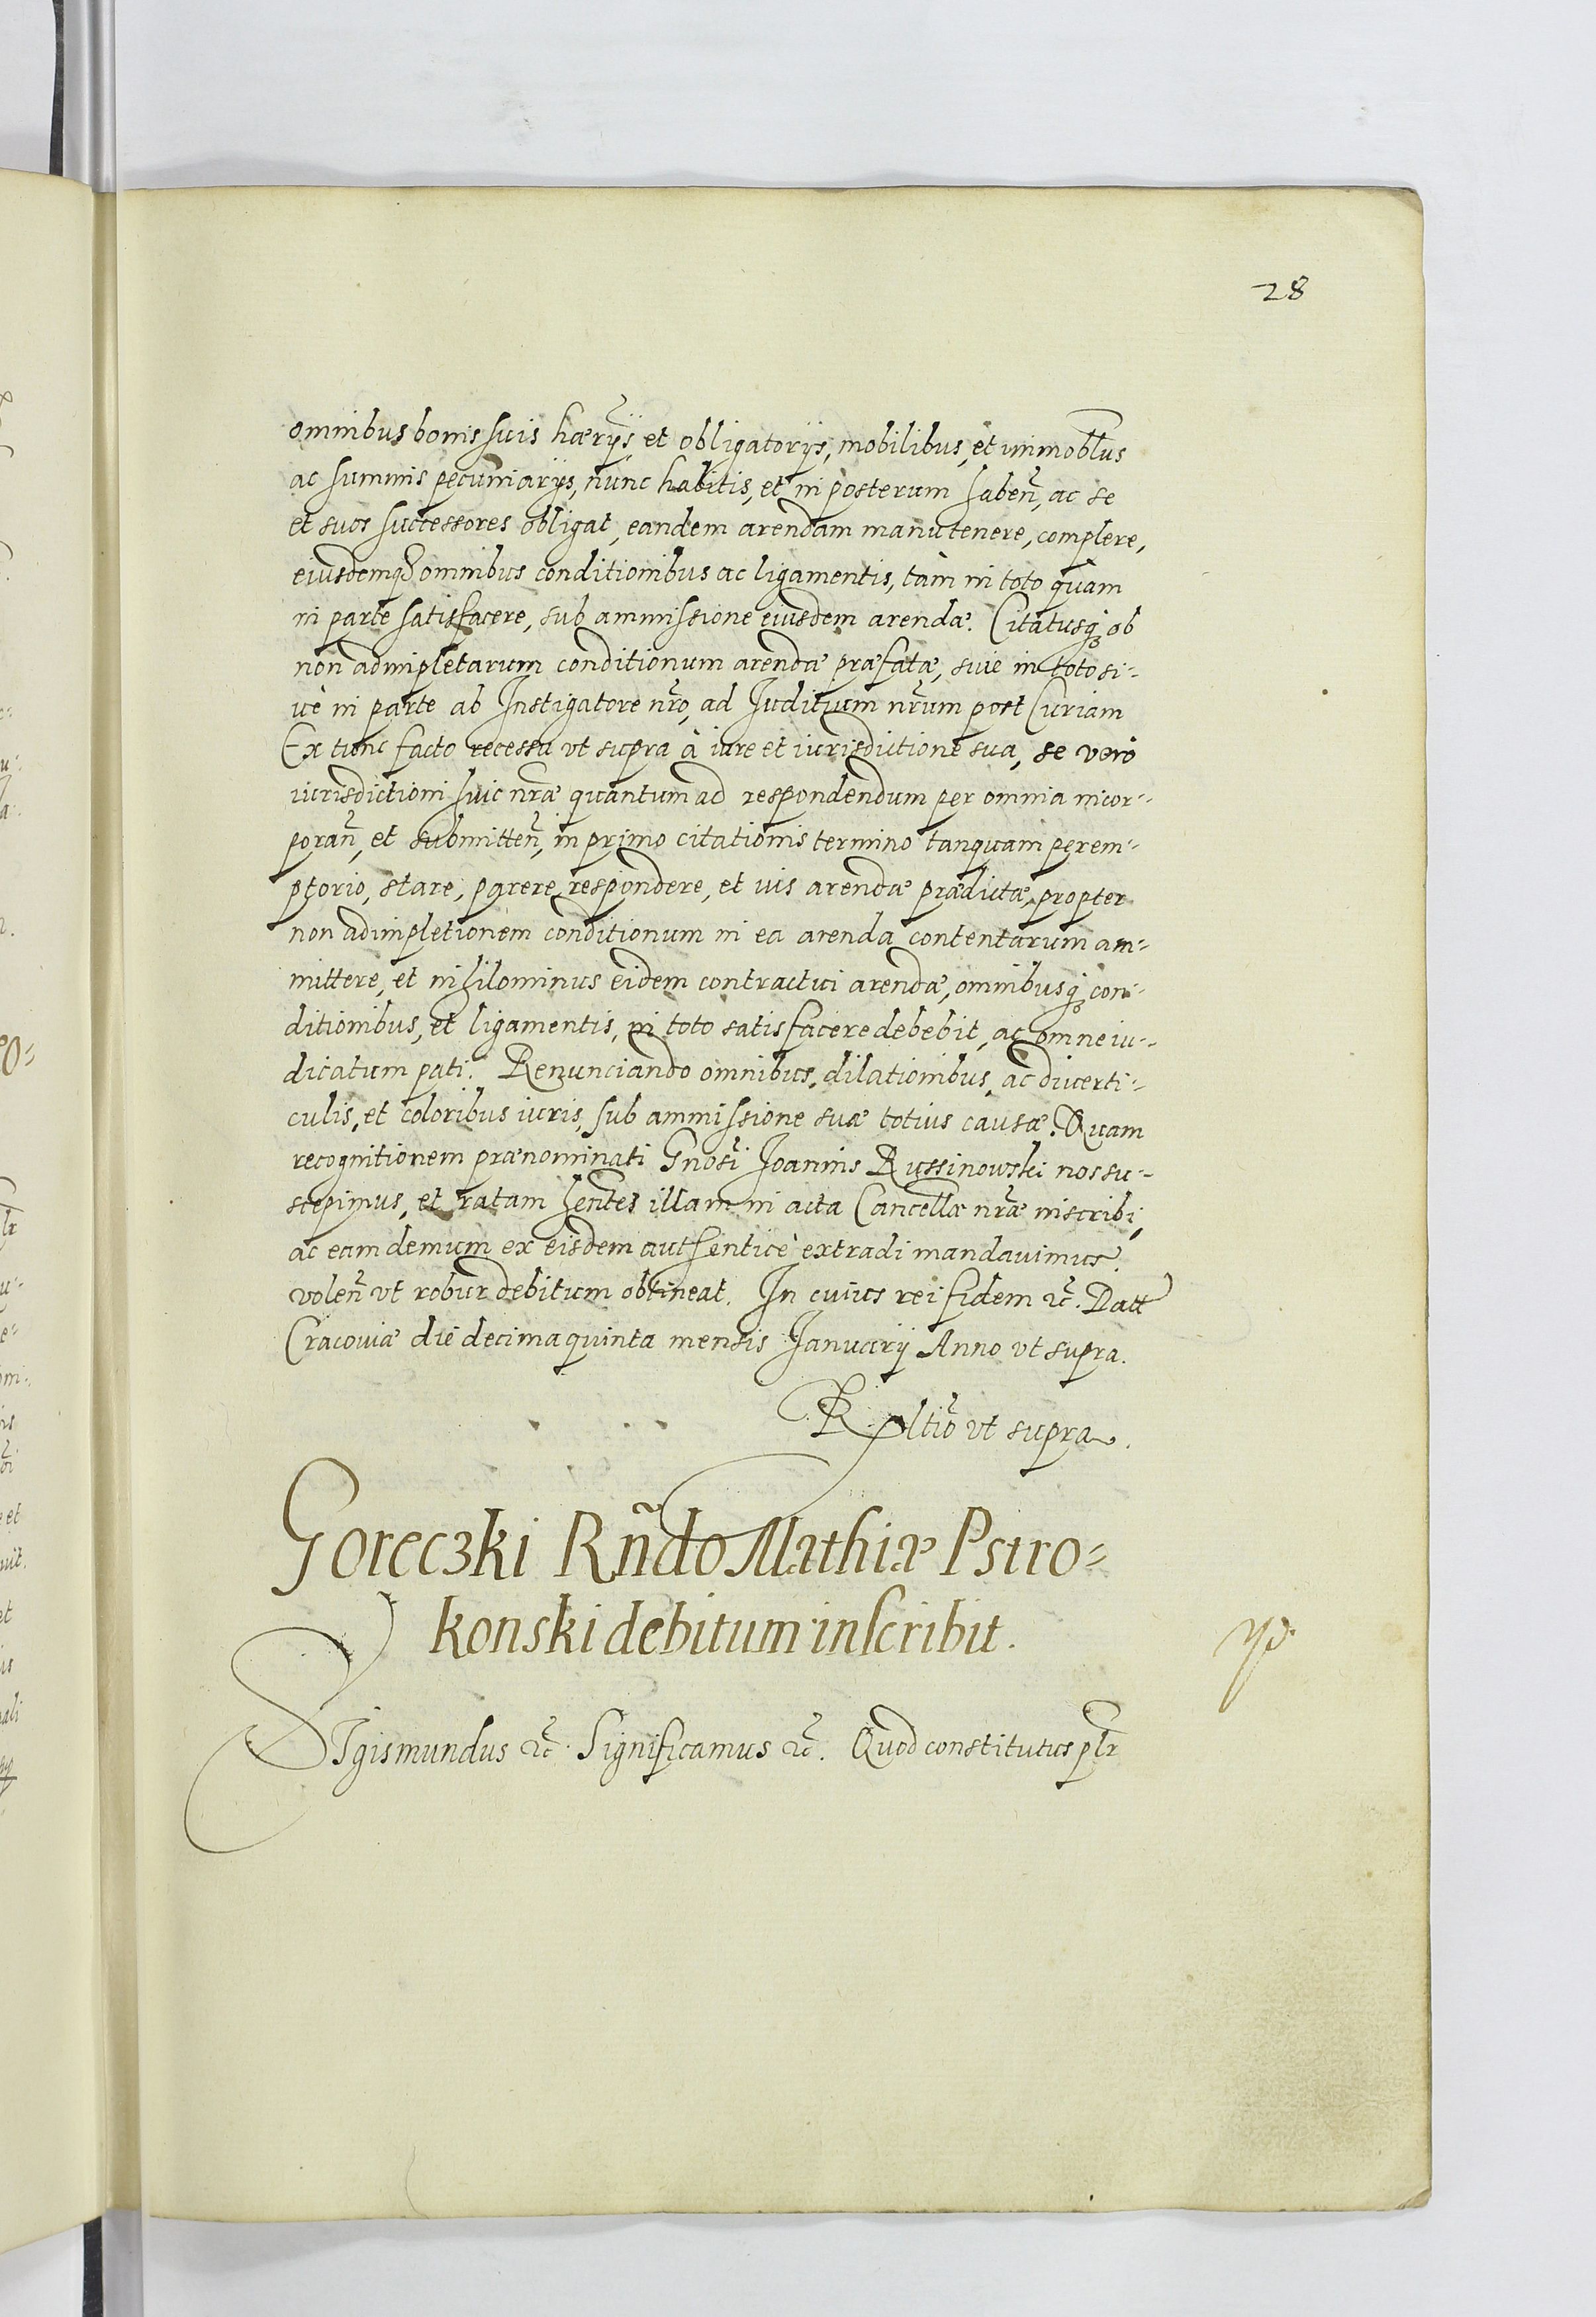 28
omnibus bonis suis hæryjs, et obligatorijs, mobilibus, et immobllus
ac summis pecuniarijs, nunc habitis, et in posterum haben̄, ac se
et suos successores obligat, eandem arendam manutenere, complere,
eiusdemq3 omnibus conditionibus ac ligamentis, tàm in toto quàm
in parte satisfacere, sub ammissione eiusdem arendæ. Citatusq3 ob
non adimpletarum conditionum arendæ præfatæ, siue in toto si-
uè in parte ab Instigatore nr̄o, ad Juditium nr̄um post Curiam
Ex tunc facto recessu vt supra à iure et iurisdictione sua, se verò
iurisdictioni huic nr̄æ quantum ad respondendum per omnia incor-
poran̄, et submitten̄, in primo citationis termino tanquam perem-
ptorio, stare, parere, respondere, et uis arendæ prædictæ, propter
non adimpletionem conditionum in ea arenda contentarum am-
mittere, et nihilominus eidem contractui arendæ, omnibusq3 con-
ditionibus, et ligamentis, in toto satisfacere debebit, ac omne iu-
dicatum pati. Renunciando omnibus, dilationibus, ac diuerti-
culis, et coloribus iuris, sub ammissione suæ totius causæ. Quam
recognitionem prænominati Gnosi Joannis Russinowski nos su-
scepimus, et ratam hentes illam in acta Cancellæ nr̄æ inscribi,
ac eam demum ex eisdem authenticè extradi mandauimus.
volen̄ vt robur debitum obtineat. In cuius rei fidem &c̄. Datt
Cracouiæ die decima quinta mensis Januarij Anno vt supra.
Rltio vt supra.
Goreczki Rñdo Mathiæ Pstro-
konski debitum inscribit.
SIgismundus &c̄. Significamus &c̄. Quod constitutus plr